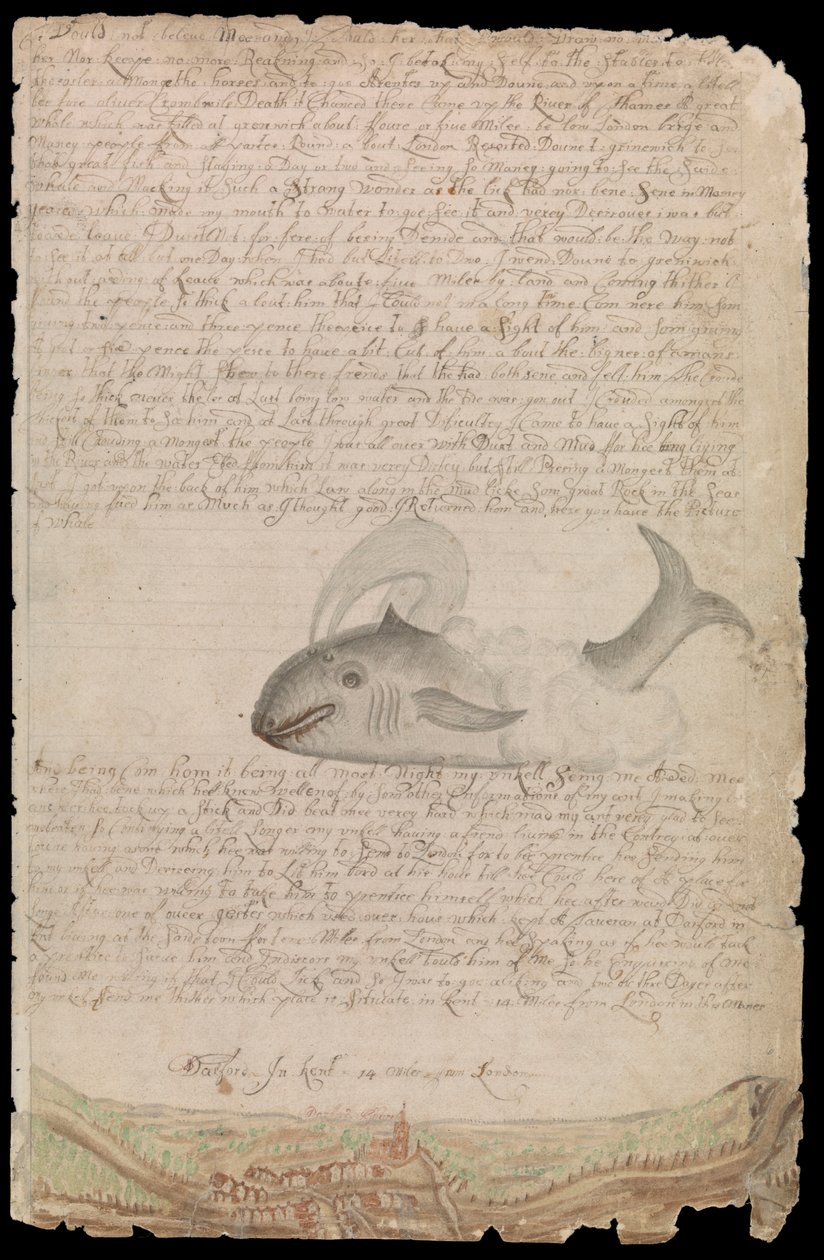 Would not beleve Mee and I tould her that I would Draw no
her Nor keepe no more Reakning and So I betak my Self to the Stables to
a Mongst the horses and to goe Arentes up and Doune and upon a time a littell
be fore oliver Cromwils Death it Chanced there Came up the River of Thames A great
whale which was killed at grenwich about fouer or five Miles be low London bridge and
Maney people from all partes Round a bout London Resorted Doune to grinewich to See
that great fish and Staying a Day or two and Seeing So Maney going to See the Saide
whale and Macking it Such a Strang Wonder as the like had not bene Sene in Maney
yeares which made my mouth to water to goe See it and verey Desirous i was but
leave I Durst Not for fere of beeing Denide and that would be the way not
to See it at all but one Day when I had but litell to Doo I wend Doune to greniwich
with out asking of leave which was aboute five Miles by land and Coming thither I
found the people So thick a bout him that I Could not in a long time Com nere him Som
giving two pence and three pence theepeice to have a Sight of him and Som giving
A groat or five pence the peice to have a bit Cut of him a bout the bignes of a mans
finger that tha Might Shew to there frends that tha had both sene and felt him The croude
being So thick never theles at Last being low water and the tide was gon out I Crouded amongest the
thickest of them to See him and at last through great Dificultey I Came to have a Sight of him
and So Crouding a Mongest the people I was all over with Durt and Mud for hee being lying
in the River and the water Ebed from him it was verey Dirtey but Still Presing a Mongest them at
last I got upon the back of him which Lay along in the mud licke Som great Rock in the Sea
and having vued him as Much as I thought good I Returned hom and here you have the Picture
of Whale
And being Com hom it being all most Night my unkell Seing me Asked mee
where I had bene which hee knew well enof by Som other Informations of my ant I making
answer hee tock up a Stick and Did beat mee verey hard which mad my ant verey glad to see
mee beaten So Continuing a litell Longer my unkell having a frend living in the Contrey at over
youre having a sone which hee was willing to Send to London for to bee prentice hee Sending him
to my unkell and Desiering him to Let him bord at his house till hee Could here of A place for
him or if hee was willing to take him to prentice himself which hee after ward Did in
long After one of oueer gestes which used ouer house which kept A Taveran at Darford in
kent living at the Saide town fforteene Miles from London and hee Speaking as if hee would tack
a prentice to Serve him and Indiscors my unkell tould him of Me So he Enquiering of me
found me willing if that I Could like and So I was to goe a liking and two or three Dayes after
my unkell Send me thither which place is Situate in kent 14 Miles from London in this Maner
Darford In Kent 14 Miles from London